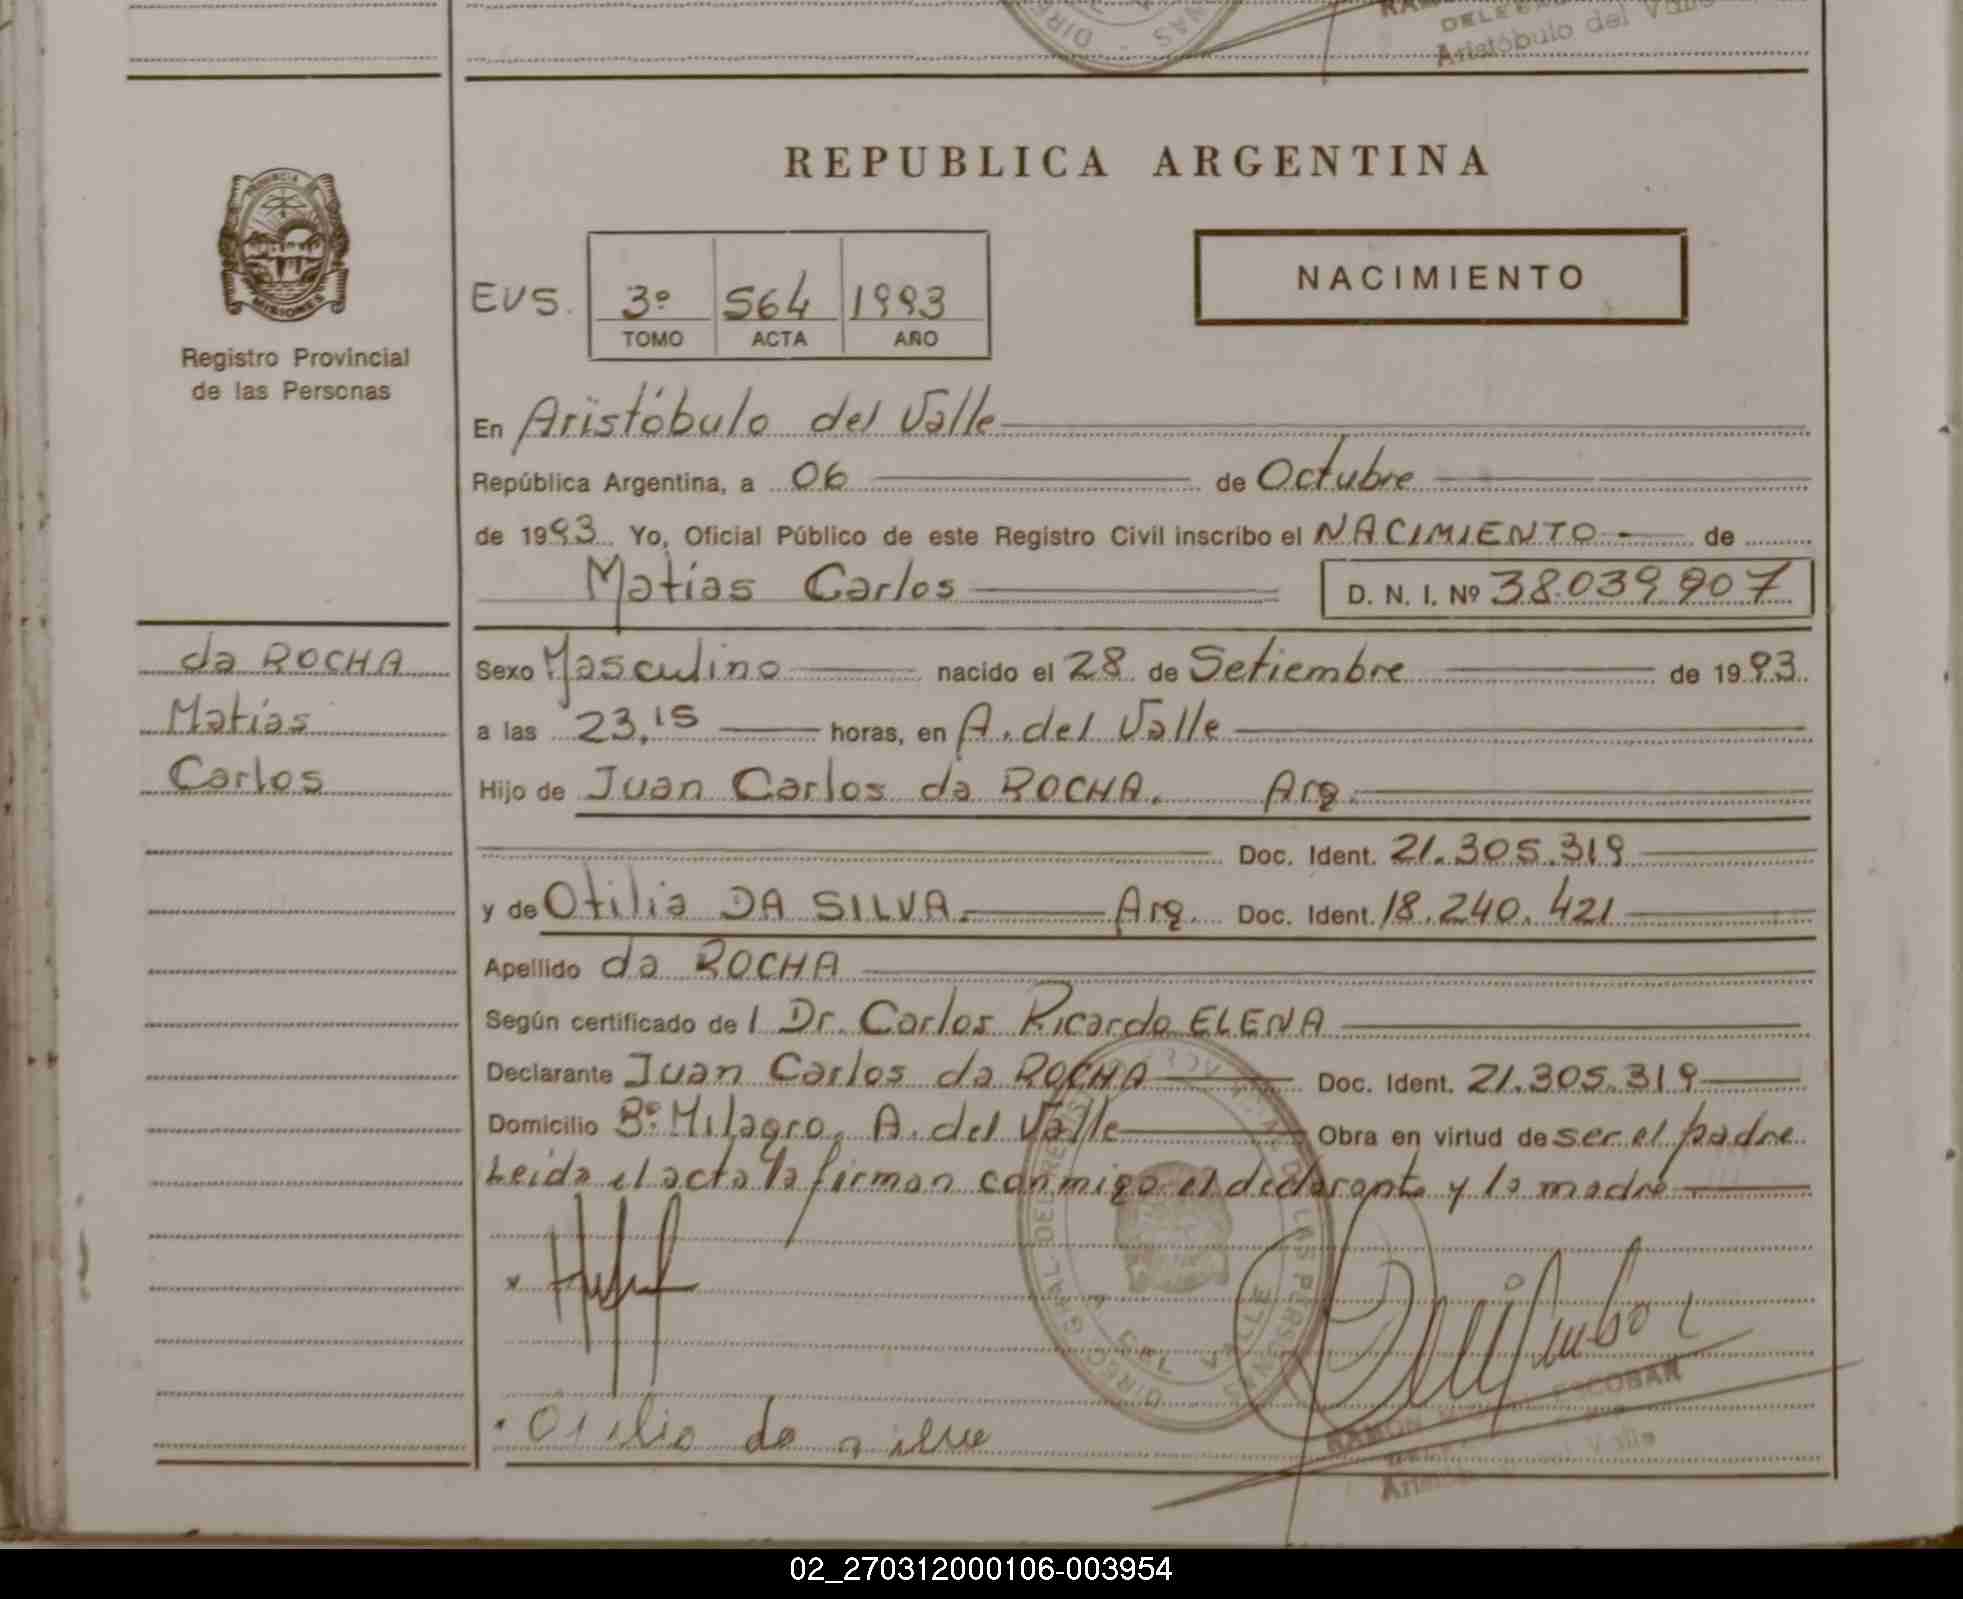 DELEG
Aristóbulo del Valle
REPUBLICA ARGENTINA
PROVINCIA
MISIONES
Registro Provincial
de las Personas
NACIMIENTO
EVS. 3º 564 1993
TOMO ACTA AÑO
En Aristóbulo del Valle
República Argentina, a 06 de Octubre
de 1993 Yo, Oficial Público de este Registro Civil inscribo el NACIMIENTO de
Matías Carlos D. N. I. Nº 38.039.907
da ROCHA
Matías
Carlos
Sexo Masculino nacido el 28 de Setiembre de 1993.
a las 23,15 horas, en A. del Valle
Hijo de Juan Carlos da ROCHA. Arg.
Doc. Ident. 21.305.319
y de Otilia DA SILVA. Arg. Doc. Ident. 18.240.421
Apellido da ROCHA
Según certificado de l Dr. Carlos Ricardo ELENA
Declarante Juan Carlos da ROCHA Doc. Ident. 21.305.319
Domicilio Bº Milagro, A. del Valle Obra en virtud de ser el padre
Leida el acta la firman conmigo el declarante y la madre
DEL LAS PERSONAS
Otilia da silva
RAMON ESCOBAR
Valle
02_270312000106-003954